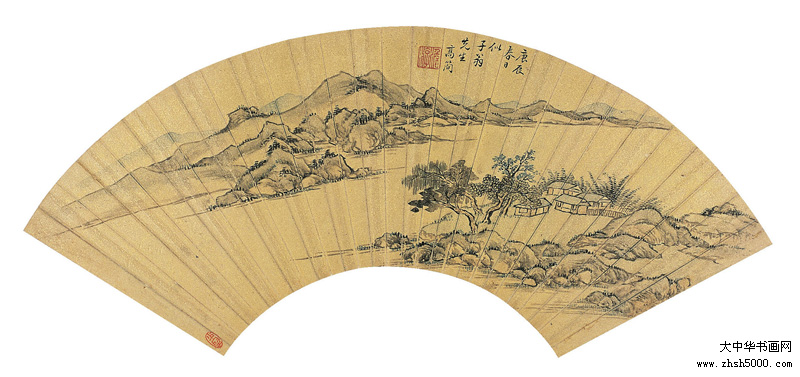 庚辰
春日
似
子翁
先生
高简
大中华书画网
www.zhsh5000.com